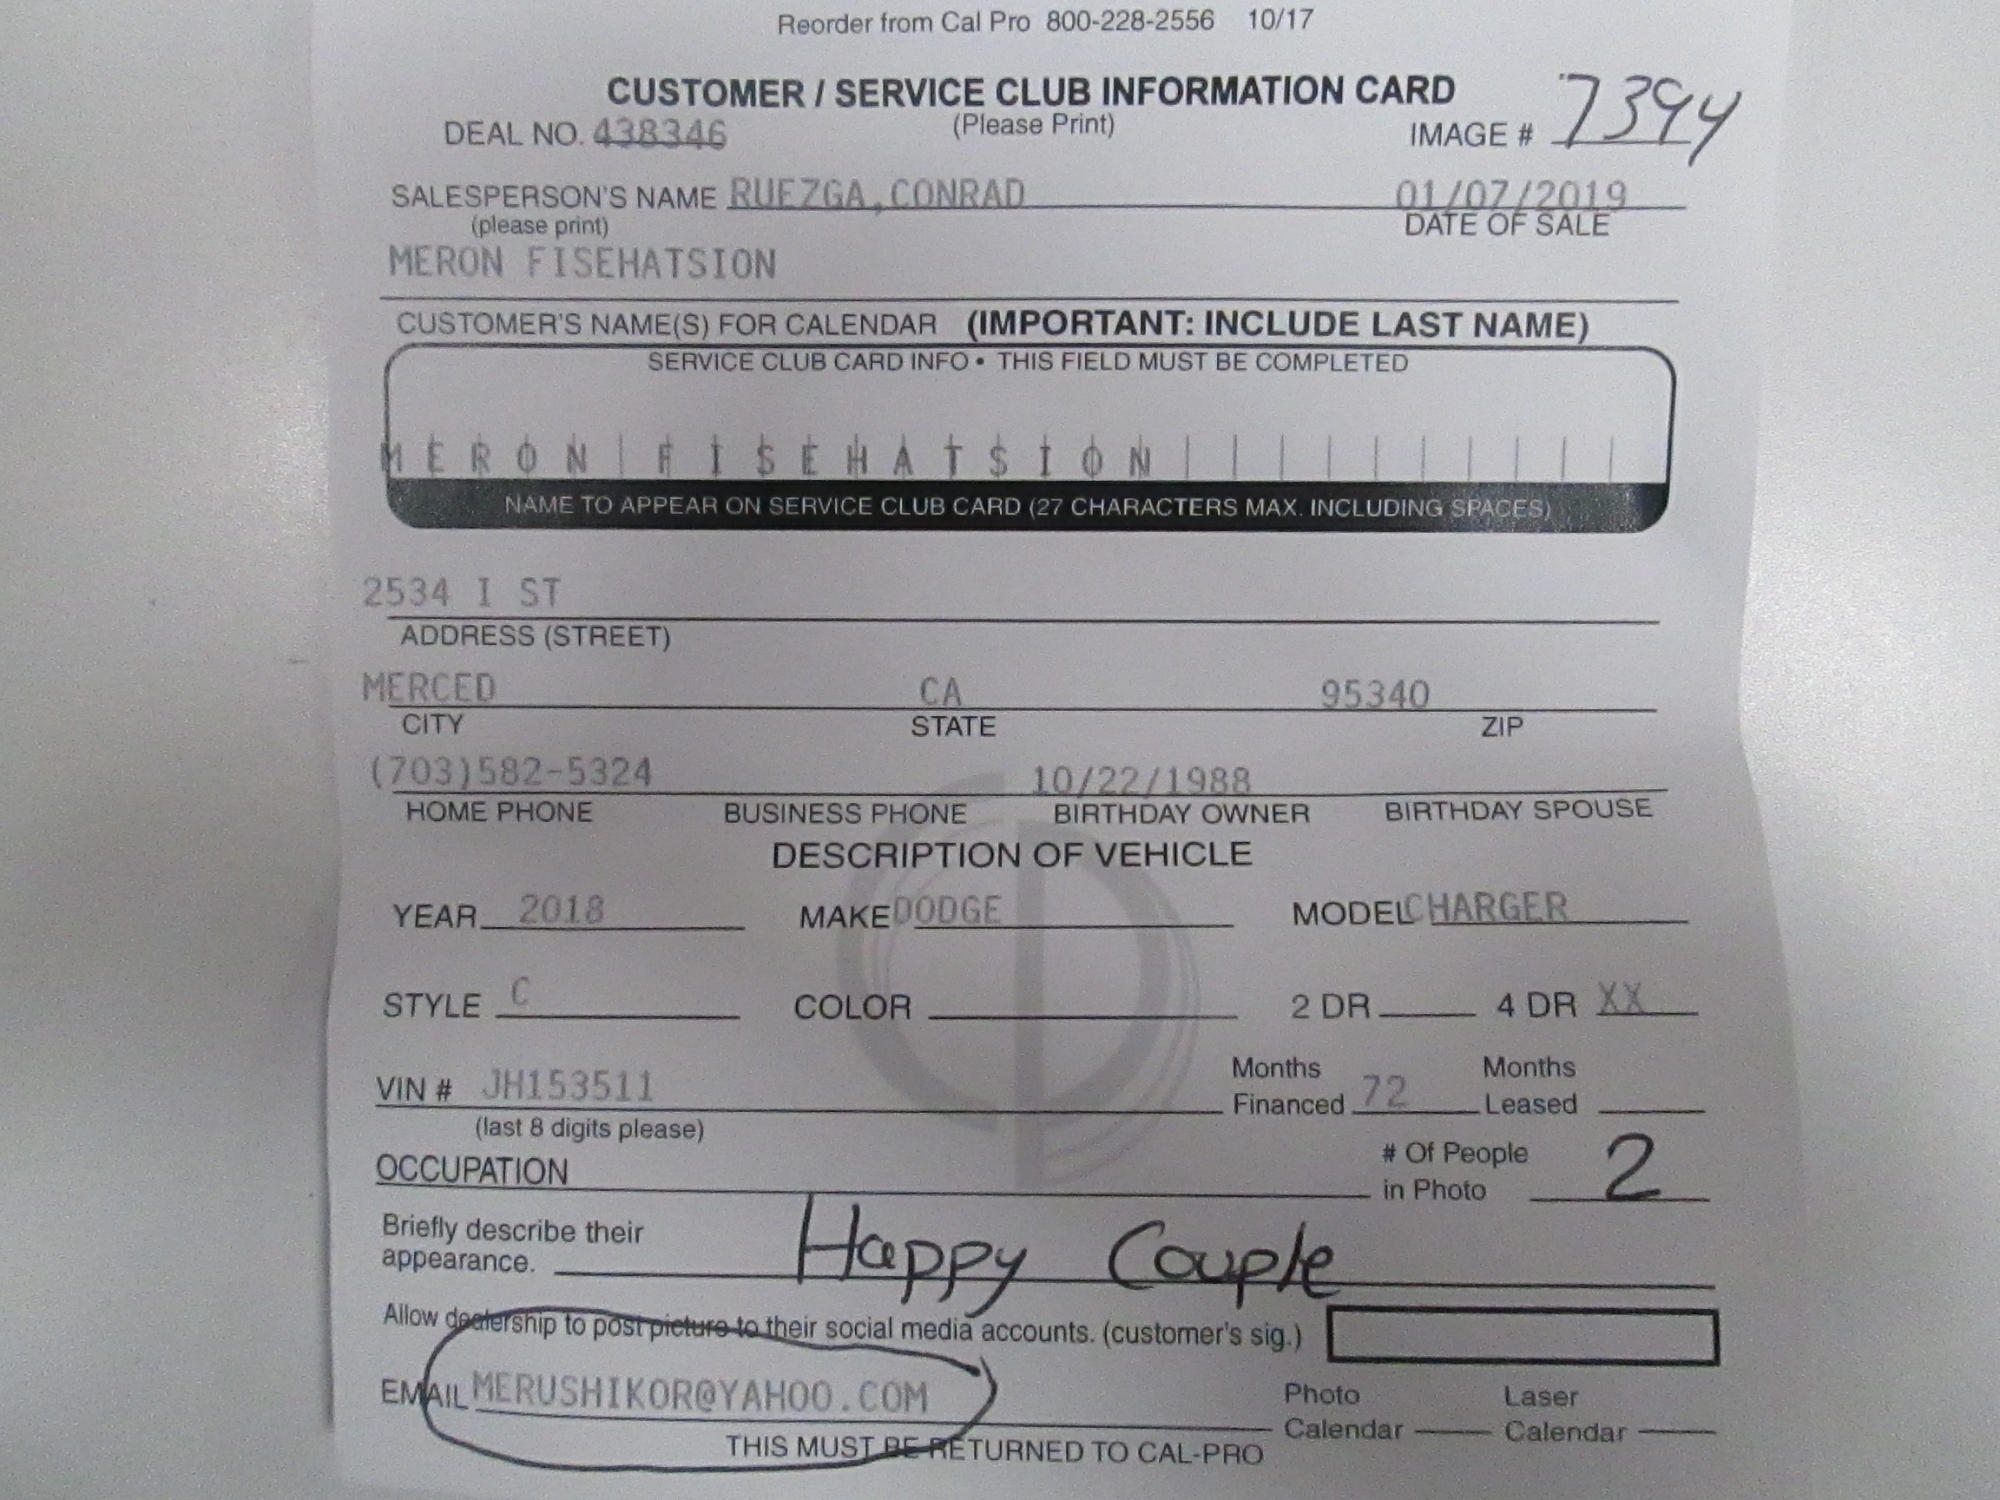 Reorder from Cal Pro 800-228-2556 10/17
CUSTOMER / SERVICE CLUB INFORMATION CARD
(Please Print)
DEAL NO. 438346
IMAGE # 7394
SALESPERSON'S NAME RUEZGA,CONRAD 01/07/2019
(please print) DATE OF SALE
MERON FISEHATSION
CUSTOMER'S NAME(S) FOR CALENDAR (IMPORTANT: INCLUDE LAST NAME)
SERVICE CLUB CARD INFO • THIS FIELD MUST BE COMPLETED
MERON FISEHATSION
NAME TO APPEAR ON SERVICE CLUB CARD (27 CHARACTERS MAX. INCLUDING SPACES)
2534 I ST
ADDRESS (STREET)
MERCED CA 95340
CITY STATE ZIP
(703)582-5324 10/22/1988
HOME PHONE BUSINESS PHONE BIRTHDAY OWNER BIRTHDAY SPOUSE
DESCRIPTION OF VEHICLE
YEAR 2018 MAKE DODGE MODEL CHARGER
STYLE C COLOR 2 DR 4 DR XX
VIN # JH153511 Months Financed 72 Months Leased
(last 8 digits please)
OCCUPATION # Of People in Photo 2
Briefly describe their
appearance. Happy Couple
Allow dealership to post picture to their social media accounts. (customer's sig.)
EMAIL MERUSHIKOR@YAHOO.COM Photo Calendar Laser Calendar
THIS MUST BE RETURNED TO CAL-PRO